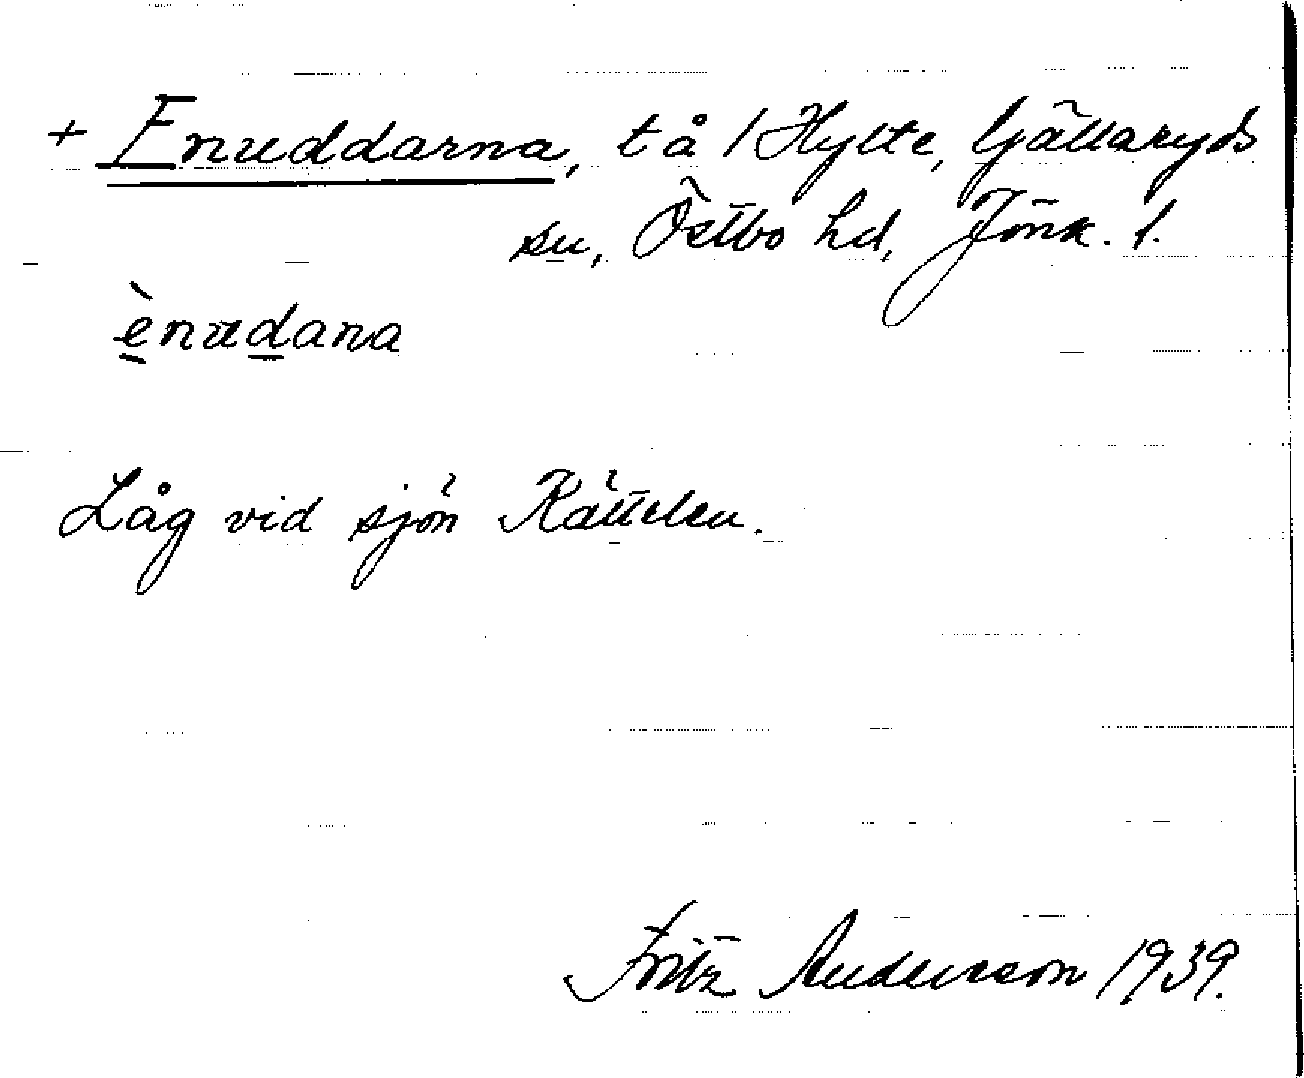 + Enuddarna, t å / Hylte, Gällaryds
sn, Östbo hd, Jönk. l.
ènudana
Låg vid sjön Rätteln.
Fritz Andersson 1939.